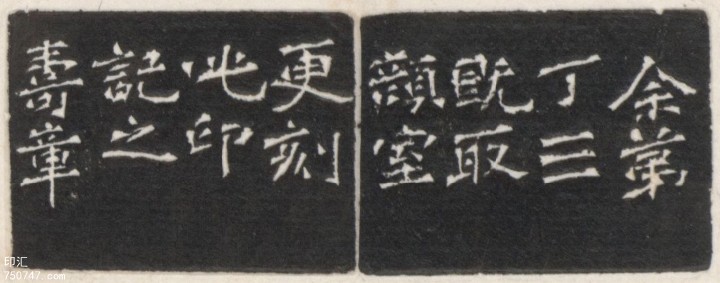 余第
丁三
既取
顏室
更刻
此印
記之
壽章
印汇
750747.com